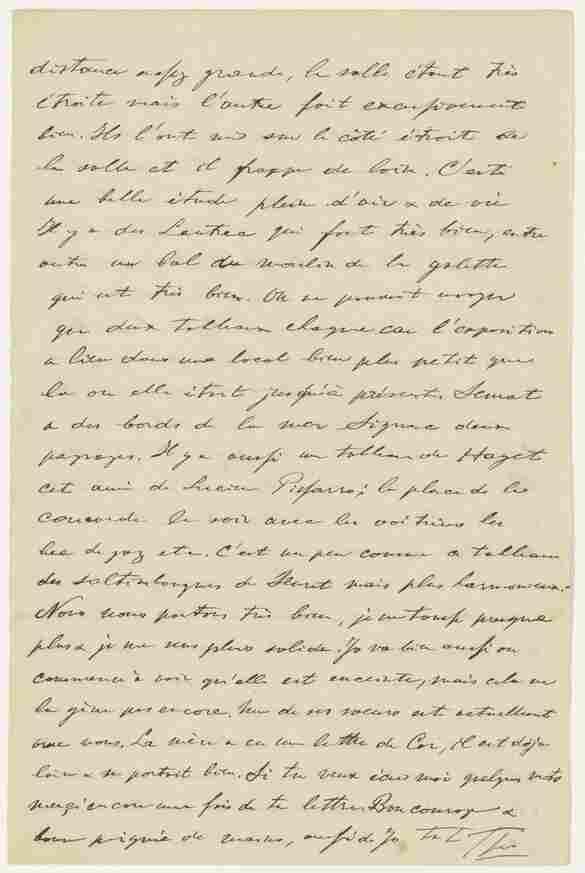 distance assez grande, la salle étant très
étroite mais l'autre fait excessivement
bien. Ils l'ont mis sur le côté étroit de
la salle et il frappe de loin. C'est
une belle étude plein d'air & de vie
Il y a des Lautrec qui font très bien, entre
autre un bal du moulin de la galette
qui est très bien. On ne pouvait envoyer
que deux tableaux chaque car l'exposition
a lieu dans une local bien plus petit que
là ou elle était jusqu'à présent. Seurat
a des bords de la mer Signac deux
paysages. Il y a aussi un tableau de Hayet
cet ami de Lucien Pissarro; la place de la
concorde le soir avec les voitures les
bec de gaz etc. C'est un peu comme ce tableau
des saltimbanques de Seurat mais plus harmonieux.
Nous nous portons très bien, je ne tousse presque
plus & je me sens plus solide. Jo va bien aussi on
commence à voir qu'elle est enceinte, mais cela ne
la gêne pas encore. Une de ses soeurs est actuellement
avec nous. La mère a eu une lettre de Cor, il est déjà
loin & se portait bien. Si tu veux écris moi quelques mots
merci encore une fois de ta lettre Bon courage &
bonne poignée de mains, aussi de Jo t. à t. Theo